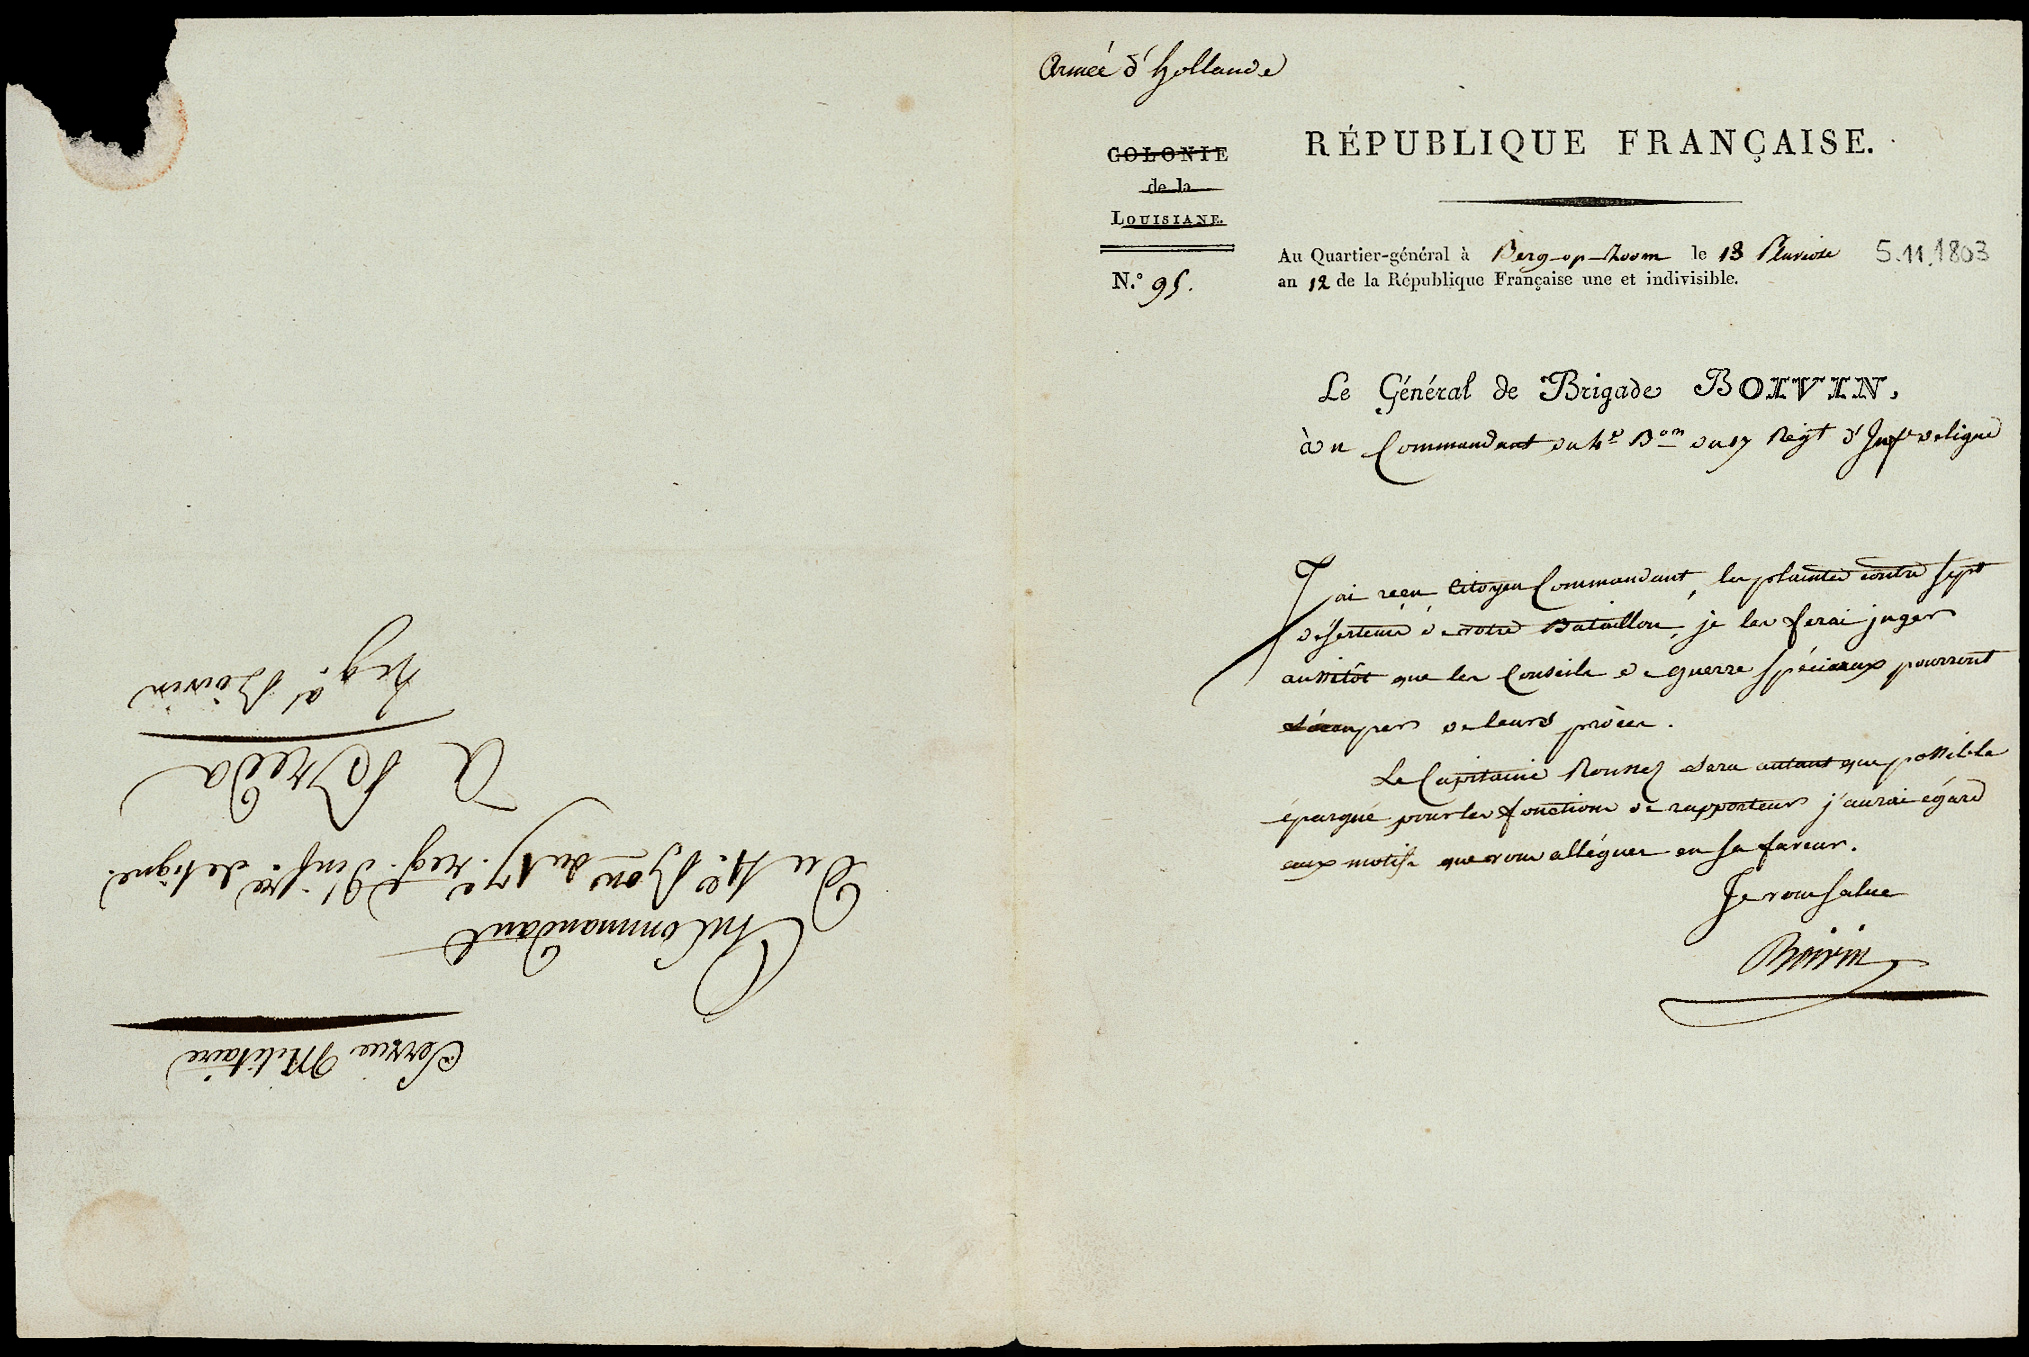 Armée d'hollande
COLONIE
de la
LOUISIANE.
N.° 95.
RÉPUBLIQUE FRANÇAISE.
Au Quartier-général à Berg-op-Zoom le 13 Pluviose 5.11.1803
an 12 de la République Française une et indivisible.
Le Général de Brigade BOIVIN,
au Commandant du 4e Bon du 17 Regt d'Infie de ligne
J'ai reçu Citoyen Commandant, les plaintes contre sept
déserteurs de votre Bataillon, je les ferai juger
aussitôt que les Conseils de guerre spéciaux pourront
s'occuper de leurs procès.
Le Capitaine Roussel sera autant que possible
épargné pour les fonctions de rapporteur j'aurai égard
aux motifs que vous alléguez en sa faveur.
Je vous salue
Boivin
Service Militaire
Au Commandant
du 4e Bon du 17e reg. d'infre de ligne.
à Breda
Le g.al Boivin